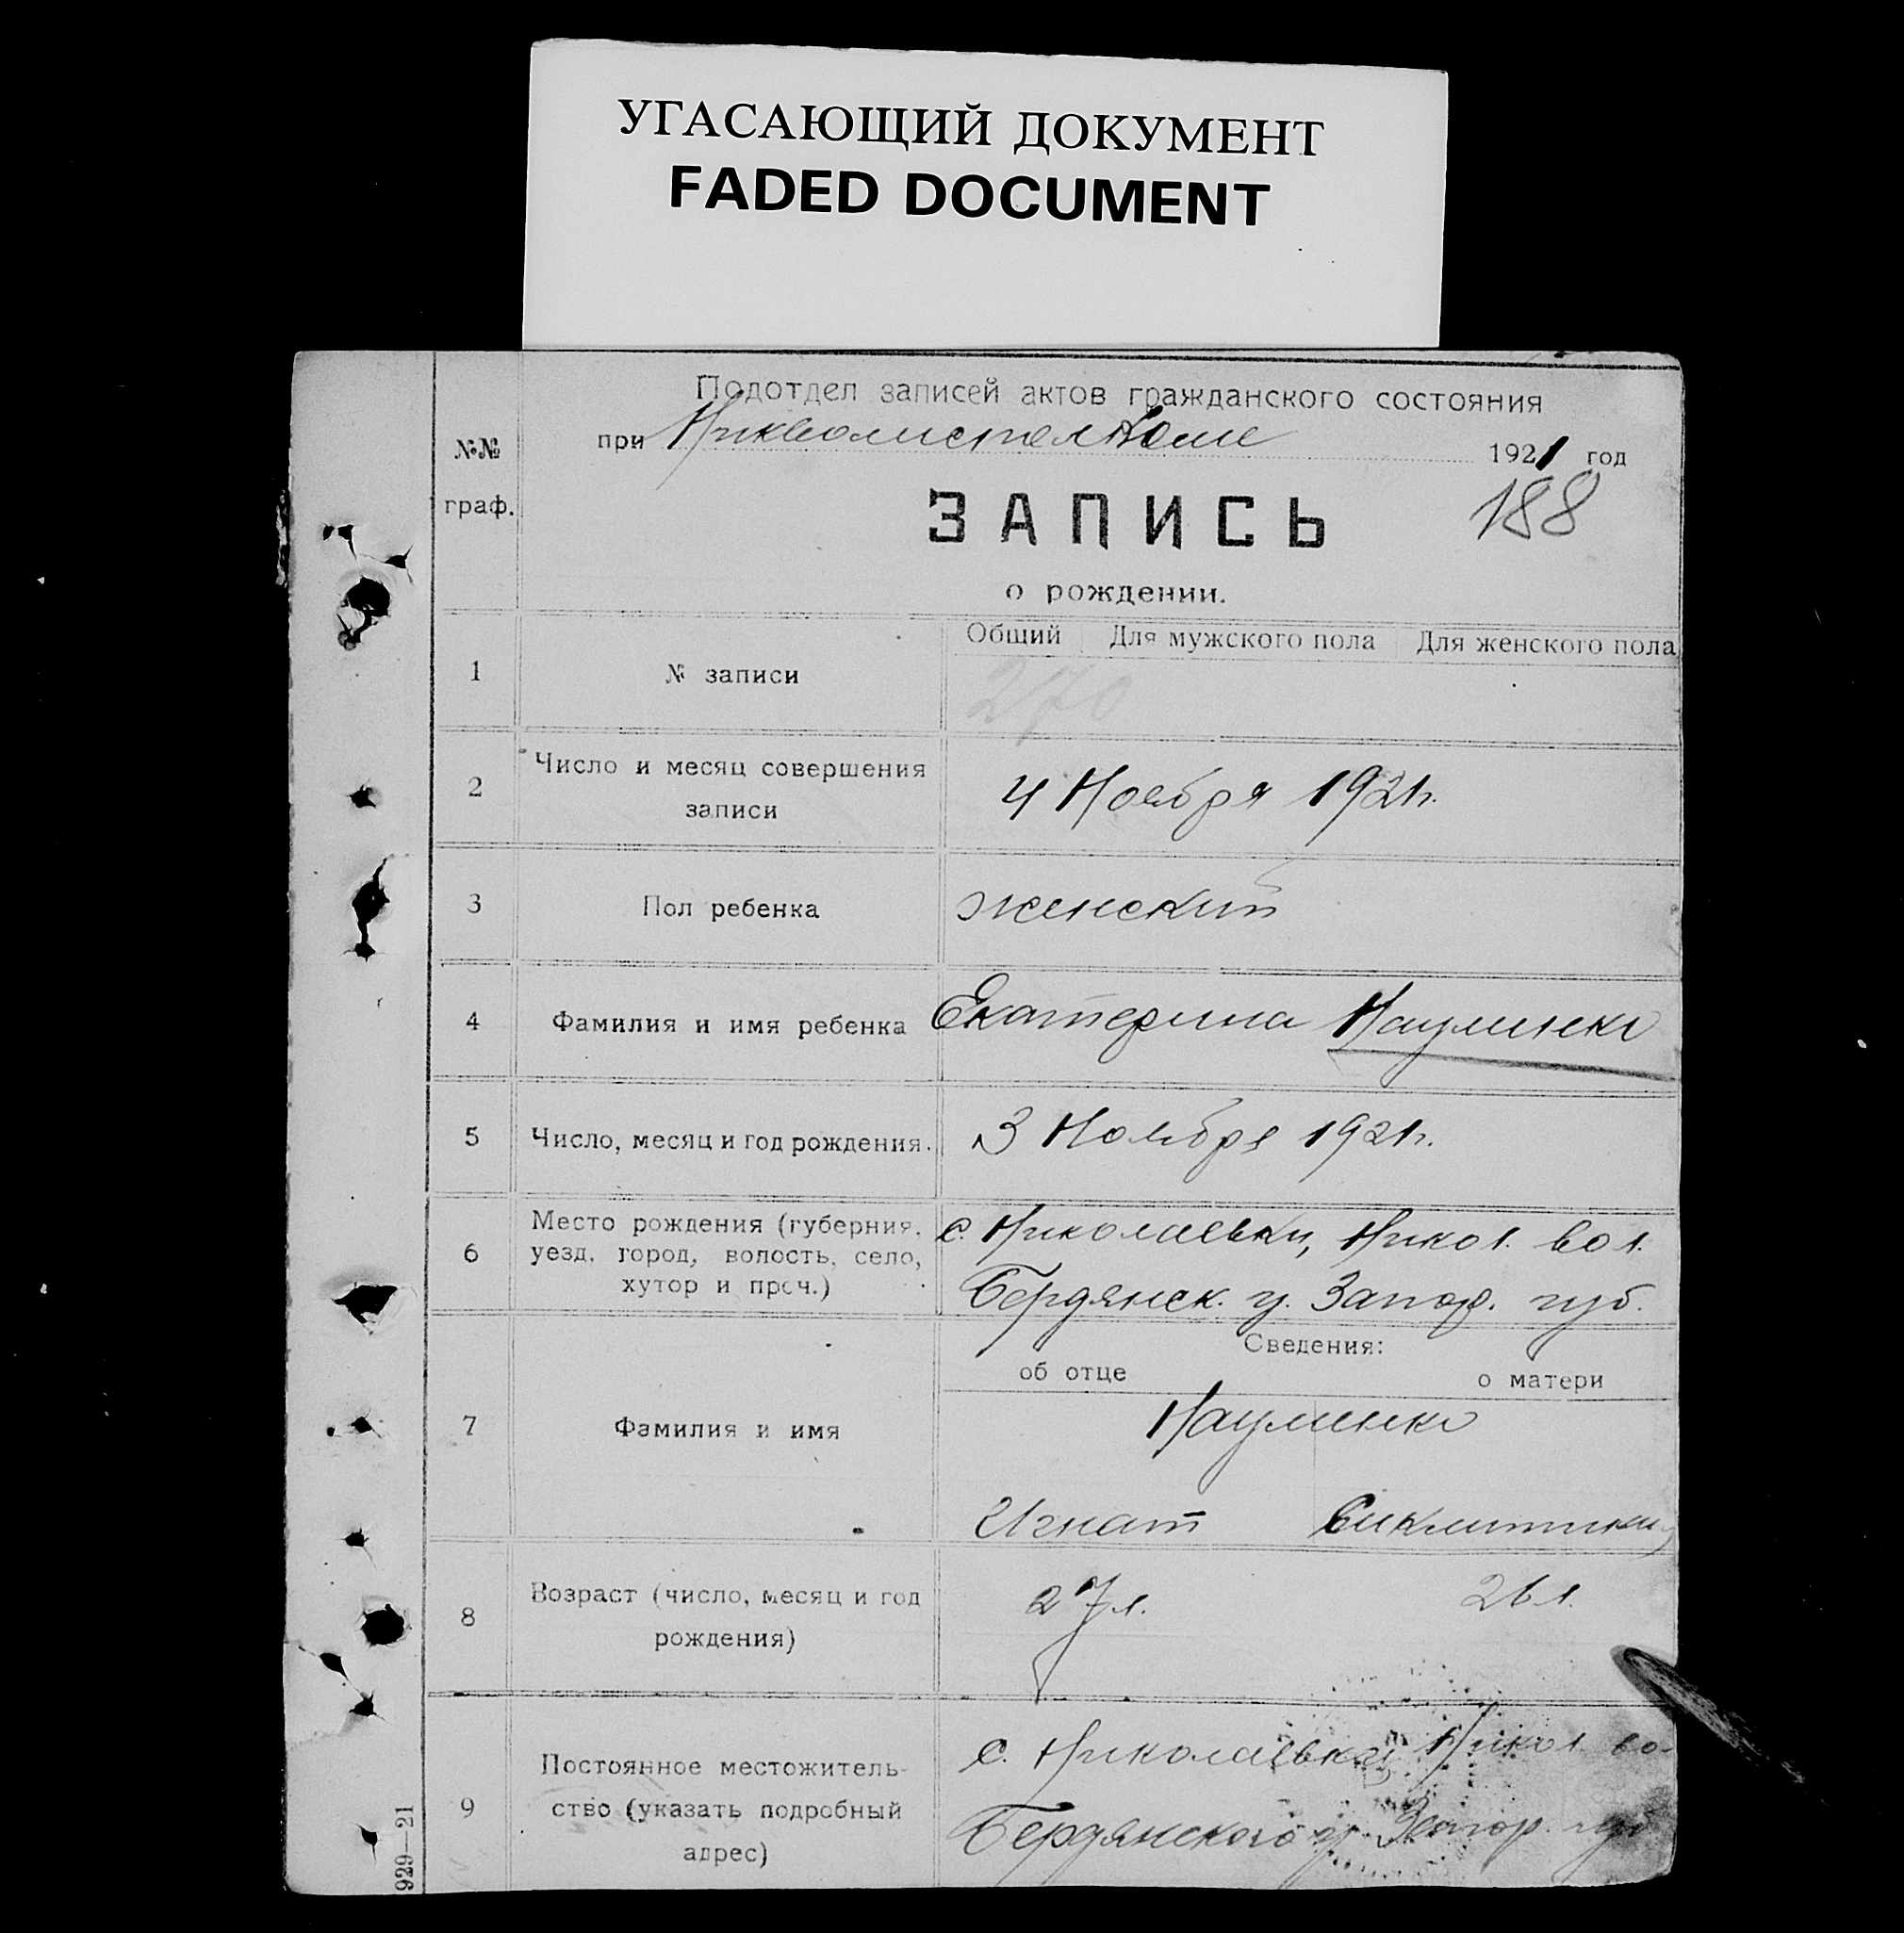 УГАСАЮЩИЙ ДОКУМЕНТ
FADED DOCUMENT
Подотдел записей актов гражданского состояния
при Никволисполкоме 1921 год
№№
граф.
188
ЗАПИСЬ
о рождении.
Общий Для мужского пола Для женского пола
1 № записи 270
2 Число и месяц совершения
записи
4 Ноября 1921г.
3 Пол ребенка женский
4 Фамилия и имя ребенка Екатерина Науменко
5 Число, месяц и год рождения. 3 Ноября 1921г.
6 Место рождения (губерния,
уезд, город, волость, село,
хутор и проч.)
с. Николаевки, Никол. вол.
Бердянск. у. Запор. губ.
Сведения:
об отце о матери
7 Фамилия и имя
Науменко
Игнат
8 Возраст (число, месяц и год
рождения)
27 л. 26 л.
9 Постоянное местожитель-
ство (указать подробный
адрес)
с. Николаевка Никол. во-
Бердянского у. Запор. губ
929—21